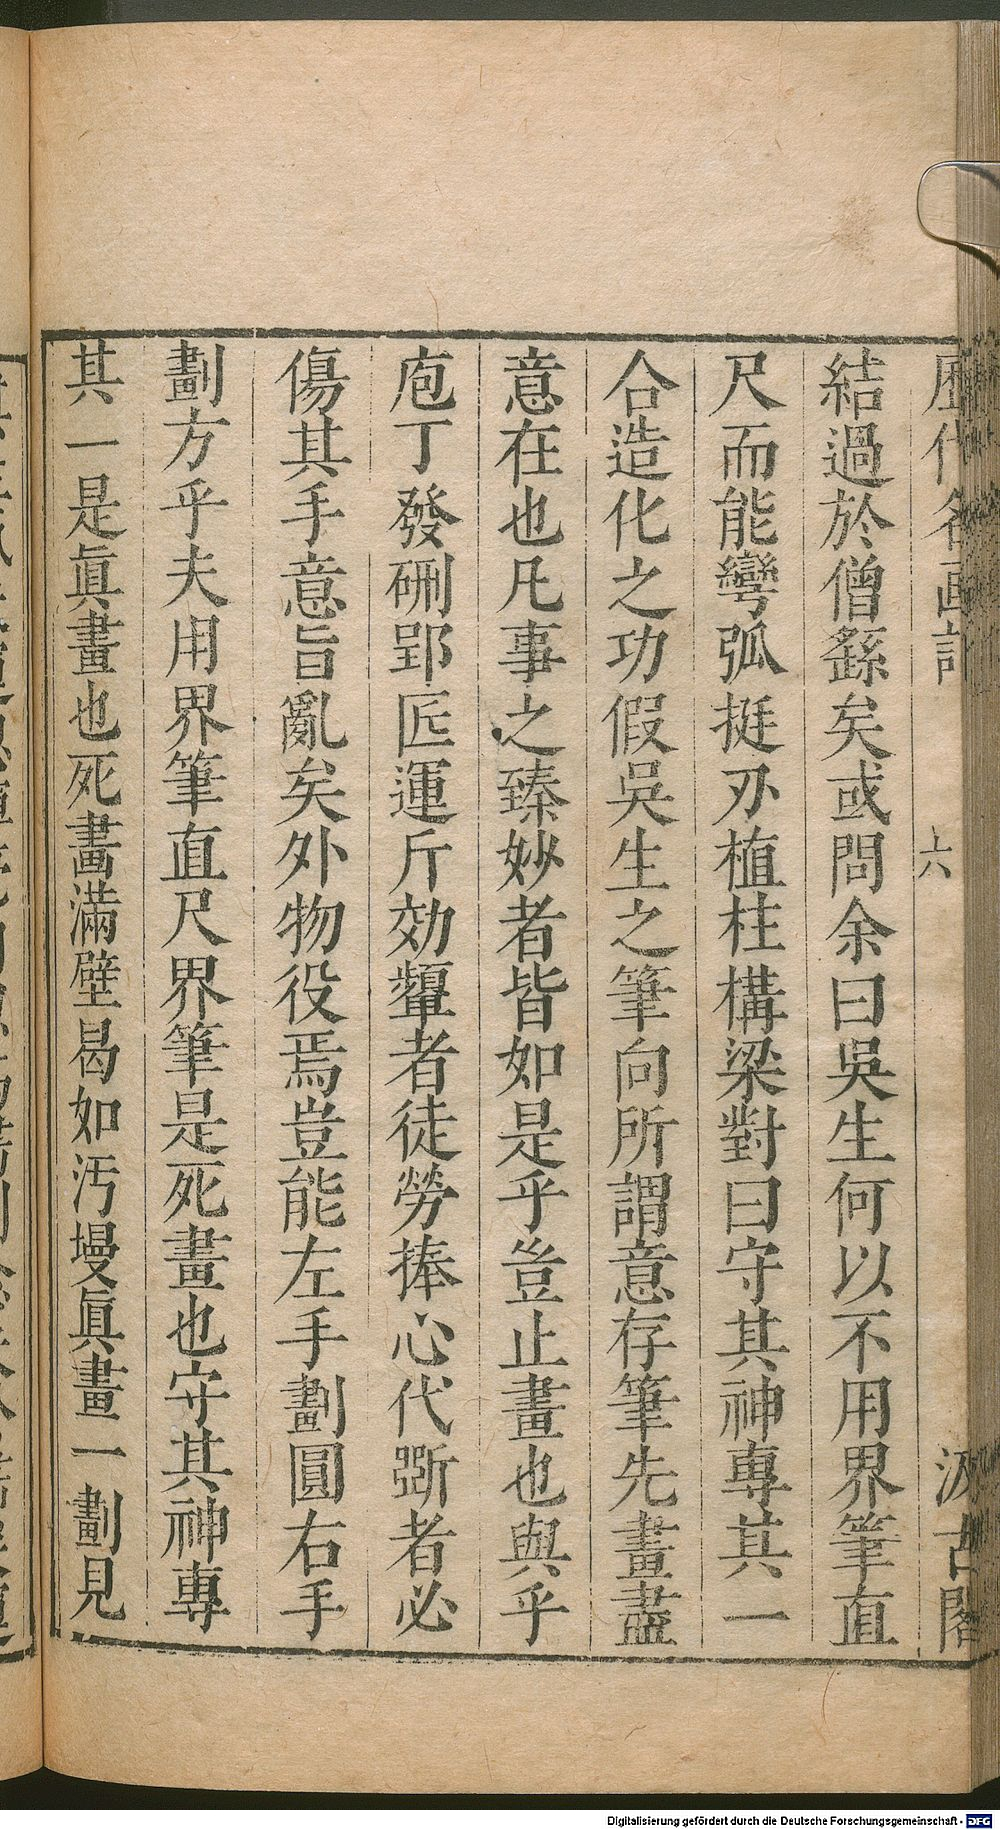 歷代名畫記 六 汲古閣
結過於僧繇矣或問余曰吳生何以不用界筆直
尺而能彎弧挺刃植柱構梁對曰守其神專其一
合造化之功假吳生之筆向所謂意存筆先畫盡
意在也凡事之臻妙者皆如是乎豈止畫也與乎
庖丁發硎郢匠運斤効顰者徒勞捧心代斲者必
傷其手意旨亂矣外物役焉豈能左手劃圓右手
劃方乎夫用界筆直尺界筆是死畫也守其神專
其一是眞畫也死畫滿壁曷如汚墁眞畫一劃見
Digitalisierung gefördert durch die Deutsche Forschungsgemeinschaft - DFG